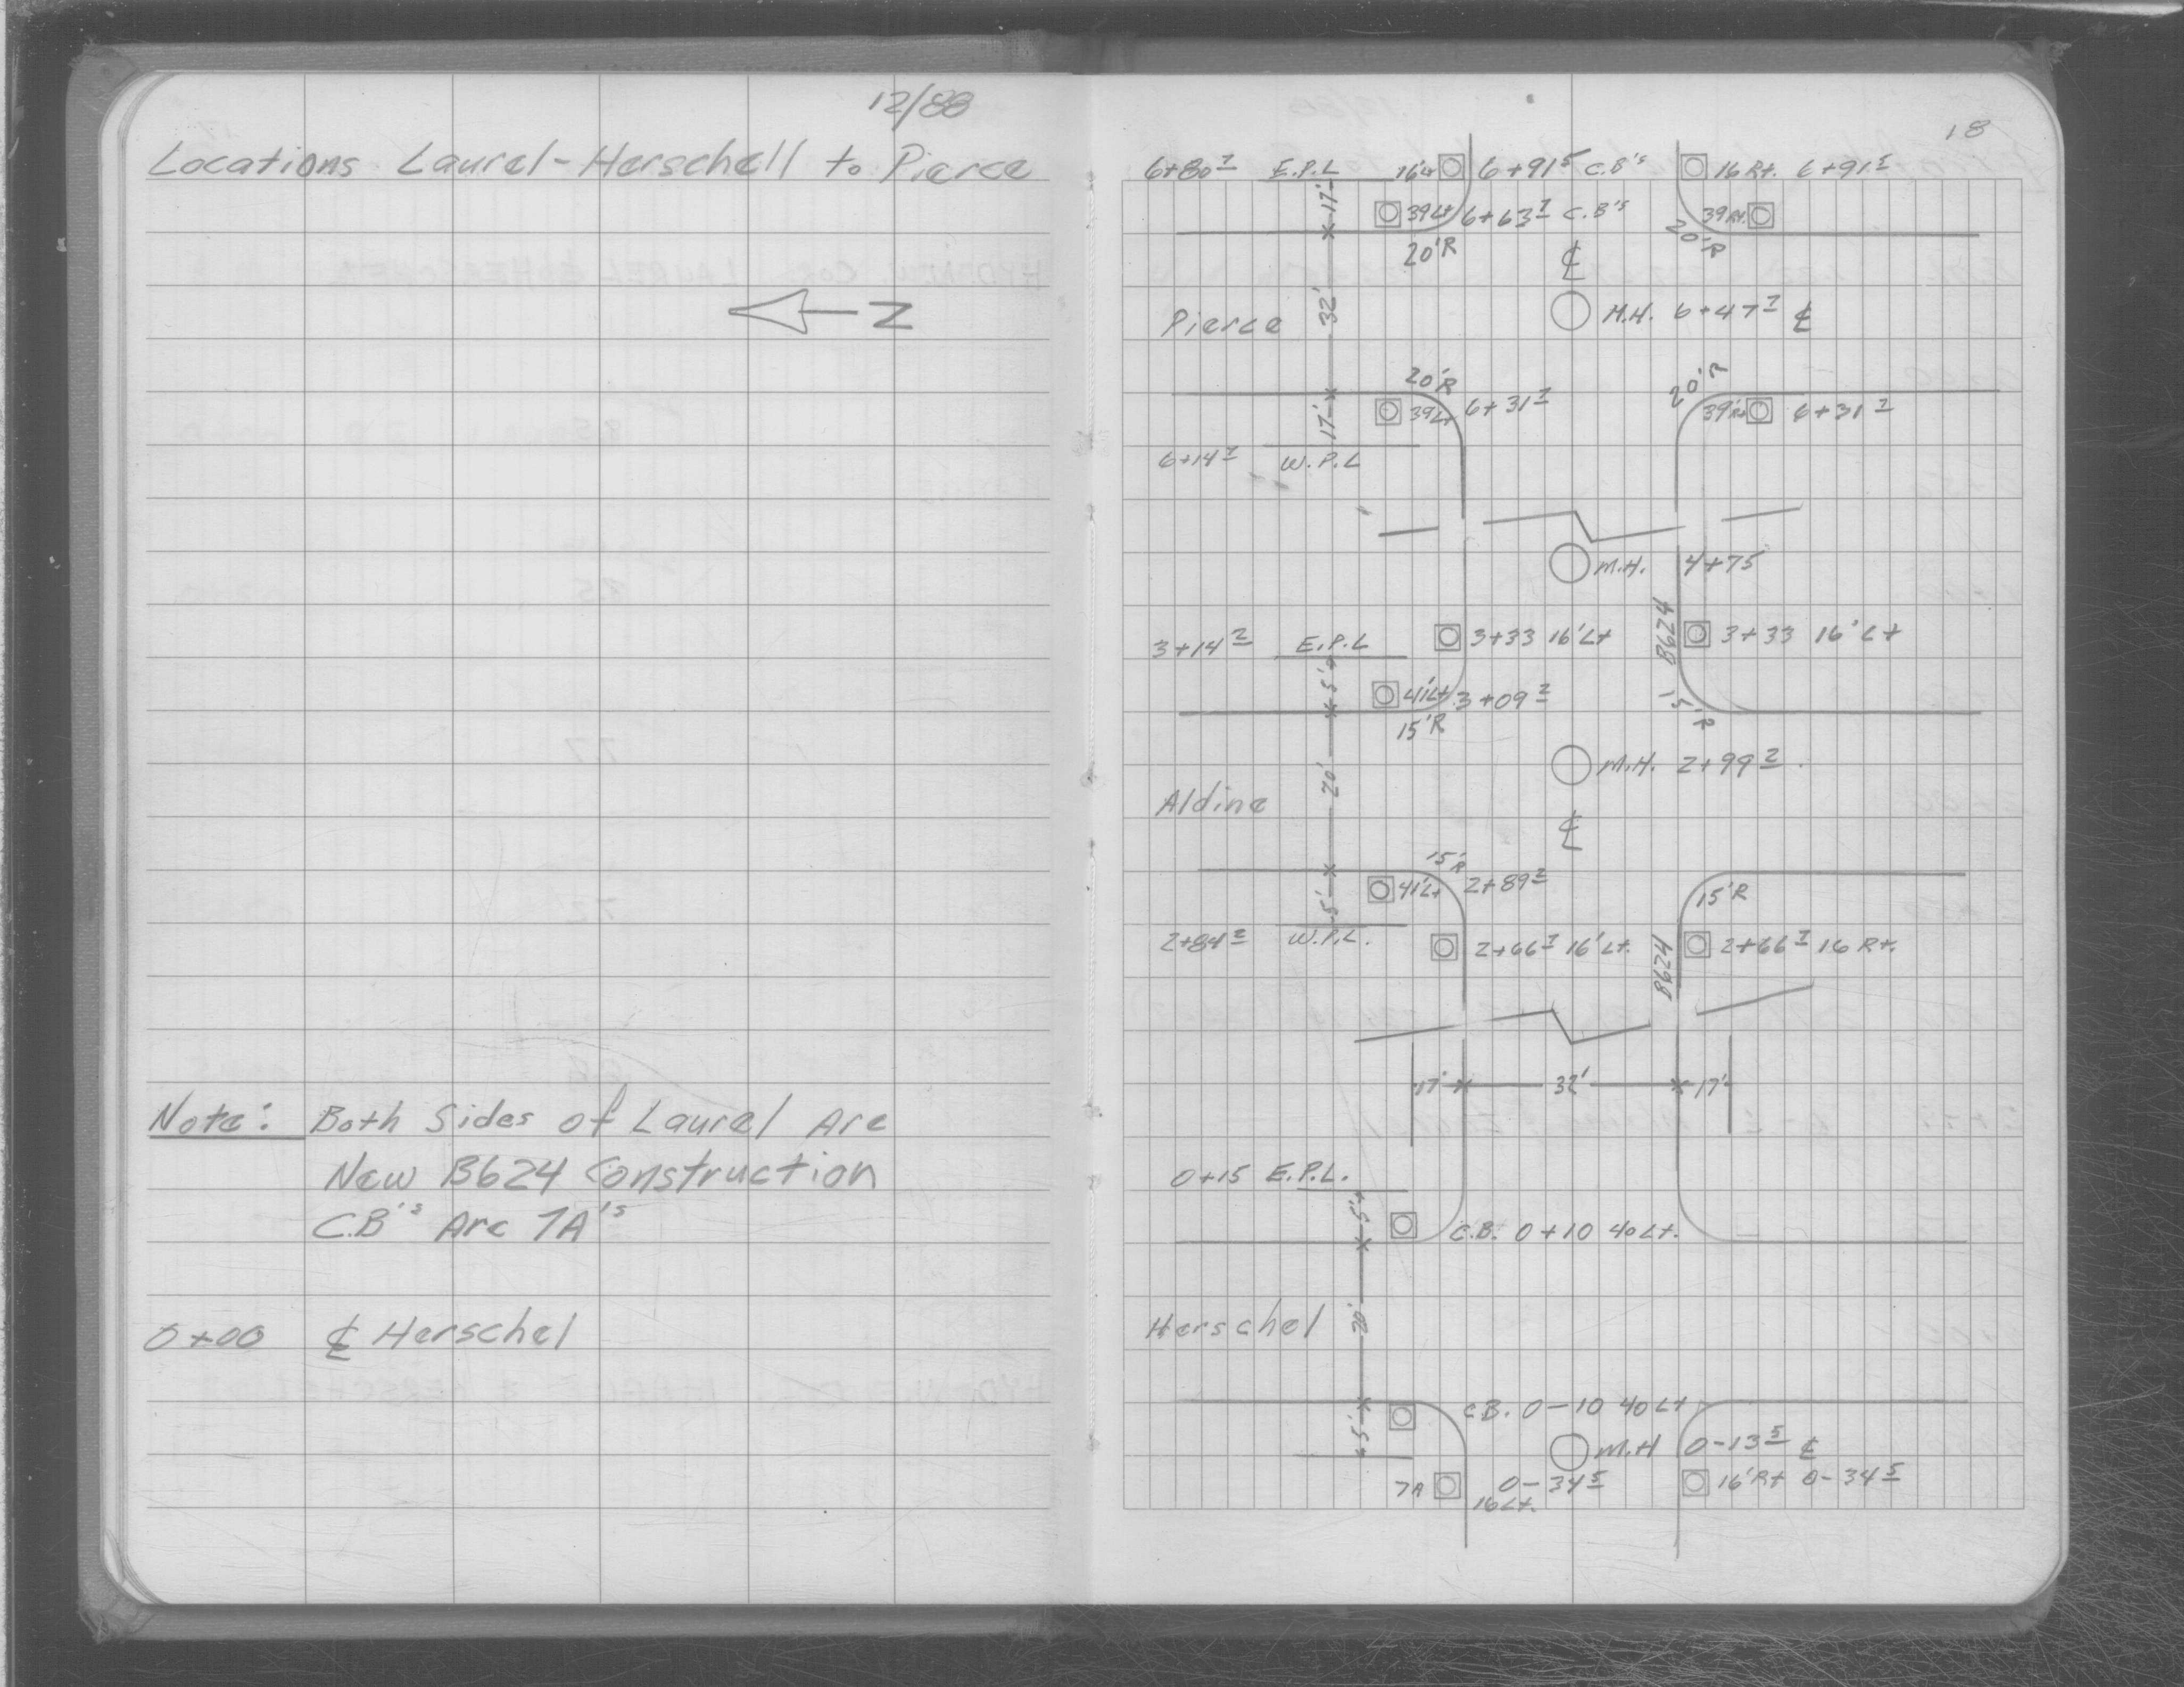 12/88
Locations Laurel-Herschell to Pierce
N
Note: Both Sides of Laurel Are
New B624 Construction
C.B's Are 7A's
0+00 ℄ Herschel
18
6+80⁷ E.P.L 16'Lt 6+91⁵ C.B's 16 Rt. 6+91⁵
17' 39Lt 6+63⁷ C.B's 39Rt.
20'R ℄ 20'R
Pierce 32' M.H. 6+47⁷ ℄
20'R 20'R
17' 39Lt 6+31⁷ 39Rt 6+31⁷
6+14⁷ W.P.L
M.H. 4+75
B624
3+14² E.P.L 3+33 16'Lt 3+33 16'Lt
5' 41Lt 3+09²
15'R 15'R
20' M.H. 2+99²
Aldine
℄
15'R
5' 41'Lt 2+89² 15'R
2+84² W.P.L. 2+66⁷ 16'Lt. B624 2+66⁷ 16 Rt.
17' 32' 17'
0+15 E.P.L.
5' C.B. 0+10 40Lt.
Herschel 20'
5' C.B. 0-10 40Lt
M.H 0-13⁵ ℄
7A 0-34⁵ 16'Rt 0-34⁵
16Lt.